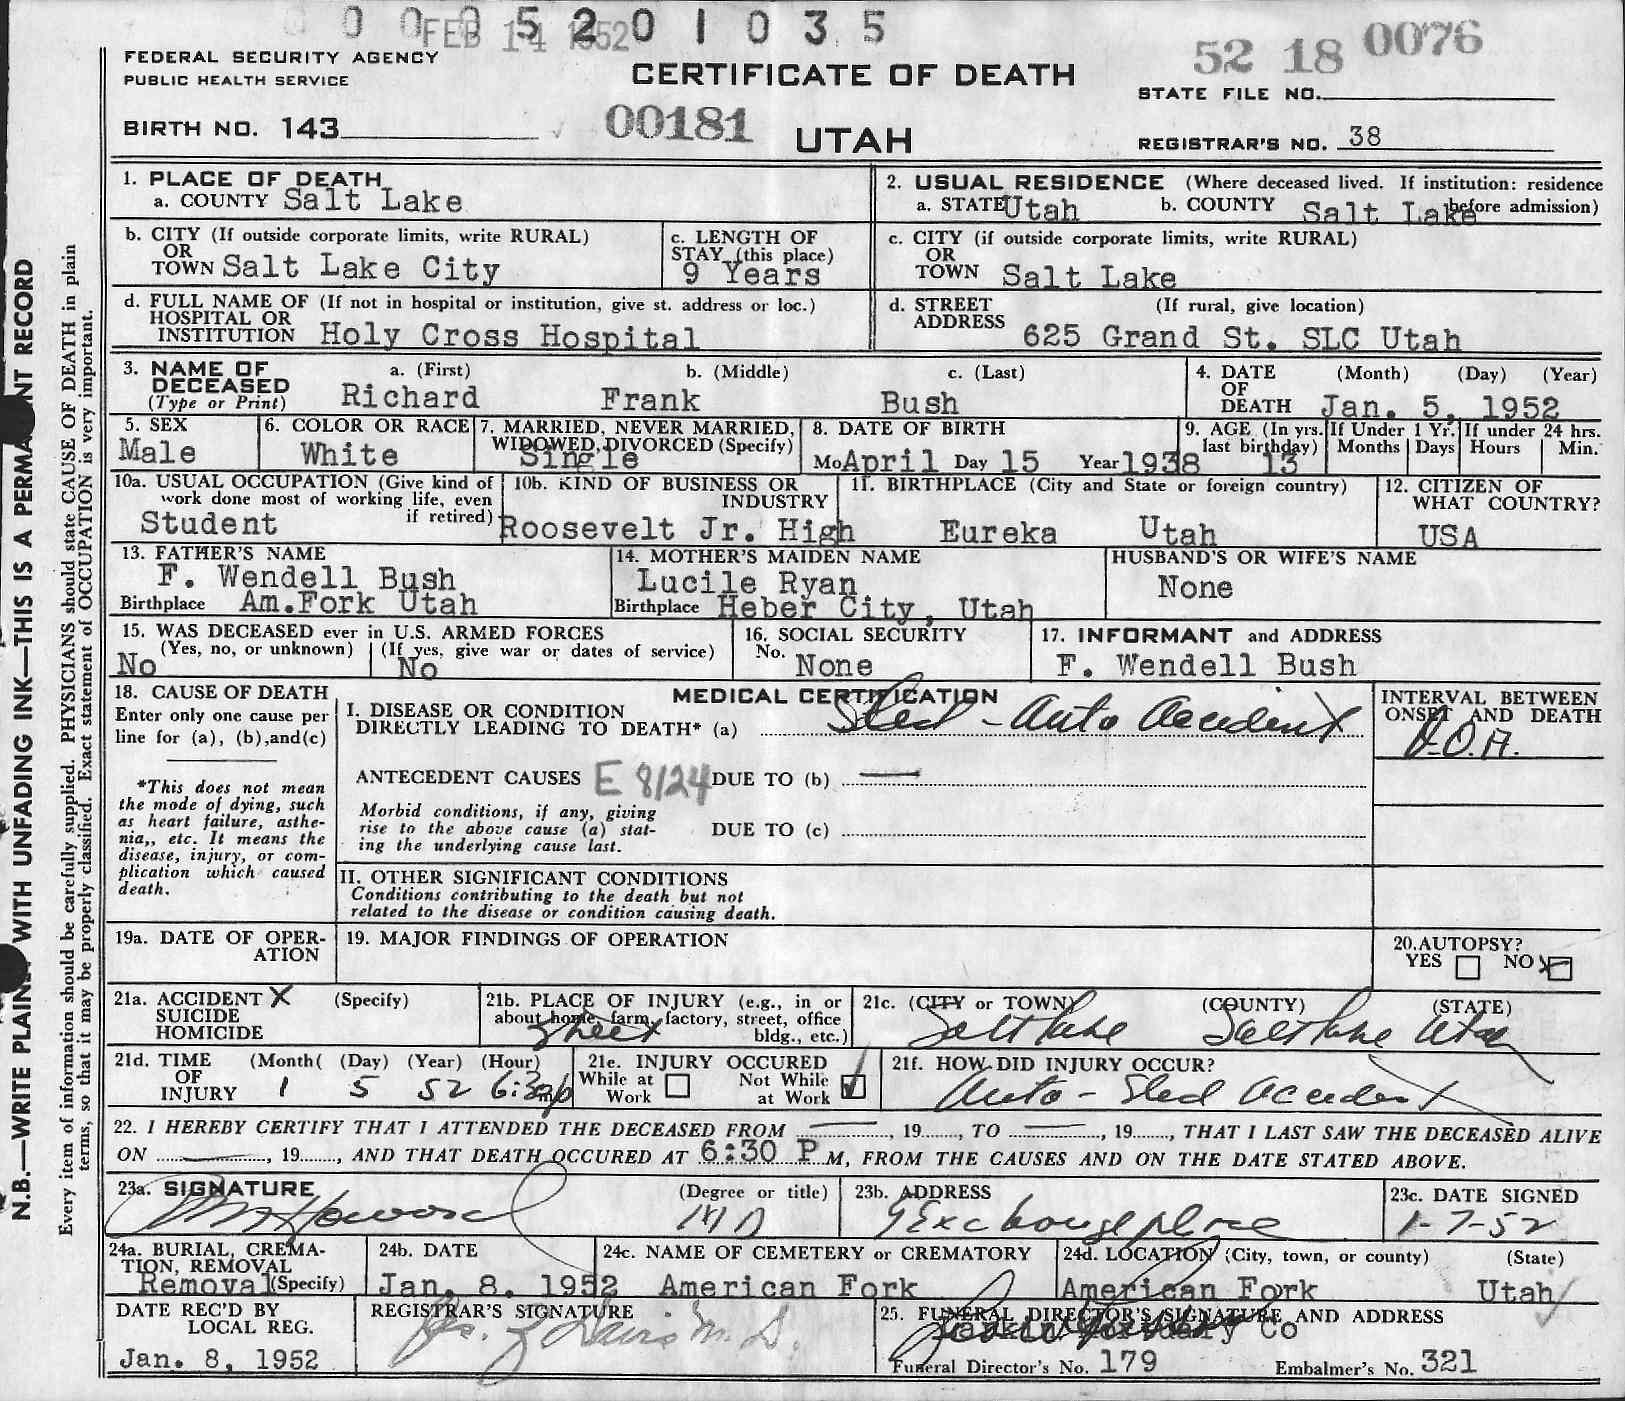 0 0 0 5 2 0 1 0 3 5
FEB 14 1952
FEDERAL SECURITY AGENCY
PUBLIC HEALTH SERVICE
CERTIFICATE OF DEATH
52 18 0076
STATE FILE NO.
BIRTH NO. 143
00181
UTAH
REGISTRAR'S NO. 38
1. PLACE OF DEATH
a. COUNTY Salt Lake
2. USUAL RESIDENCE (Where deceased lived. If institution: residence before admission)
a. STATE Utah b. COUNTY Salt Lake
b. CITY (If outside corporate limits, write RURAL)
OR
TOWN Salt Lake City
c. LENGTH OF
STAY (this place)
9 Years
c. CITY (if outside corporate limits, write RURAL)
OR
TOWN Salt Lake
d. FULL NAME OF (If not in hospital or institution, give st. address or loc.)
HOSPITAL OR
INSTITUTION Holy Cross Hospital
d. STREET (If rural, give location)
ADDRESS 625 Grand St. SLC Utah
3. NAME OF a. (First) b. (Middle) c. (Last)
DECEASED
(Type or Print) Richard Frank Bush
4. DATE (Month) (Day) (Year)
OF
DEATH Jan. 5, 1952
5. SEX
Male
6. COLOR OR RACE
White
7. MARRIED, NEVER MARRIED,
WIDOWED, DIVORCED (Specify)
Single
8. DATE OF BIRTH
Mo April Day 15 Year 1938
9. AGE (In yrs.
last birthday)
13
If Under 1 Yr.
Months Days
If under 24 hrs.
Hours Min.
10a. USUAL OCCUPATION (Give kind of
work done most of working life, even
if retired)
Student
10b. KIND OF BUSINESS OR
INDUSTRY
Roosevelt Jr. High
11. BIRTHPLACE (City and State or foreign country)
Eureka Utah
12. CITIZEN OF
WHAT COUNTRY?
USA
13. FATHER'S NAME
F. Wendell Bush
Birthplace Am.Fork Utah
14. MOTHER'S MAIDEN NAME
Lucile Ryan
Birthplace Heber City, Utah
HUSBAND'S OR WIFE'S NAME
None
15. WAS DECEASED ever in U.S. ARMED FORCES
(Yes, no, or unknown) (If yes, give war or dates of service)
No No
16. SOCIAL SECURITY
No. None
17. INFORMANT and ADDRESS
F. Wendell Bush
18. CAUSE OF DEATH
Enter only one cause per
line for (a), (b),and(c)
*This does not mean
the mode of dying, such
as heart failure, asthe-
nia,, etc. It means the
disease, injury, or com-
plication which caused
death.
MEDICAL CERTIFICATION
I. DISEASE OR CONDITION
DIRECTLY LEADING TO DEATH* (a) Sled - Auto Accident
INTERVAL BETWEEN
ONSET AND DEATH
D.O.A.
ANTECEDENT CAUSES E 8124 DUE TO (b)
Morbid conditions, if any, giving
rise to the above cause (a) stat-
ing the underlying cause last.
DUE TO (c)
II. OTHER SIGNIFICANT CONDITIONS
Conditions contributing to the death but not
related to the disease or condition causing death.
19a. DATE OF OPER-
ATION
19. MAJOR FINDINGS OF OPERATION
20. AUTOPSY?
YES NO X
21a. ACCIDENT X (Specify)
SUICIDE
HOMICIDE
21b. PLACE OF INJURY (e.g., in or
about home, farm, factory, street, office
bldg., etc.)
Street
21c. (CITY or TOWN) (COUNTY) (STATE)
Salt Lake Salt Lake Utah
21d. TIME (Month( (Day) (Year) (Hour)
OF
INJURY 1 5 52 6:30p
21e. INJURY OCCURED
While at Work Not While at Work
21f. HOW DID INJURY OCCUR?
Auto - Sled Accident
22. I HEREBY CERTIFY THAT I ATTENDED THE DECEASED FROM , 19 , TO , 19 , THAT I LAST SAW THE DECEASED ALIVE
ON , 19 , AND THAT DEATH OCCURED AT 6:30 P M, FROM THE CAUSES AND ON THE DATE STATED ABOVE.
23a. SIGNATURE (Degree or title)
Howard MD
23b. ADDRESS
9 Exchange place
23c. DATE SIGNED
1-7-52
24a. BURIAL, CREMA-
TION, REMOVAL
Removal (Specify)
24b. DATE
Jan. 8. 1952
24c. NAME OF CEMETERY or CREMATORY
American Fork
24d. LOCATION (City, town, or county) (State)
American Fork Utah
DATE REC'D BY
LOCAL REG.
Jan. 8, 1952
REGISTRAR'S SIGNATURE
Davis M.D.
25. FUNERAL DIRECTOR'S SIGNATURE AND ADDRESS
Larkin Mortuary Co
Funeral Director's No. 179 Embalmer's No. 321
N.B.—WRITE PLAINLY WITH UNFADING INK—THIS IS A PERMANENT RECORD
Every item of information should be carefully supplied. PHYSICIANS should state CAUSE OF DEATH in plain
terms, so that it may be properly classified. Exact statement of OCCUPATION is very important.